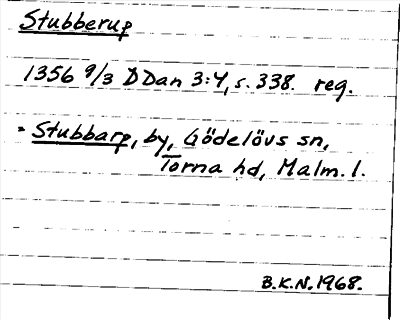 Stubberup
1356 9/3 DDan 3:4, s. 338. reg.
= Stubbarp, by, Gödelövs sn,
Torna hd, Malm. l.
B.K.N. 1968.